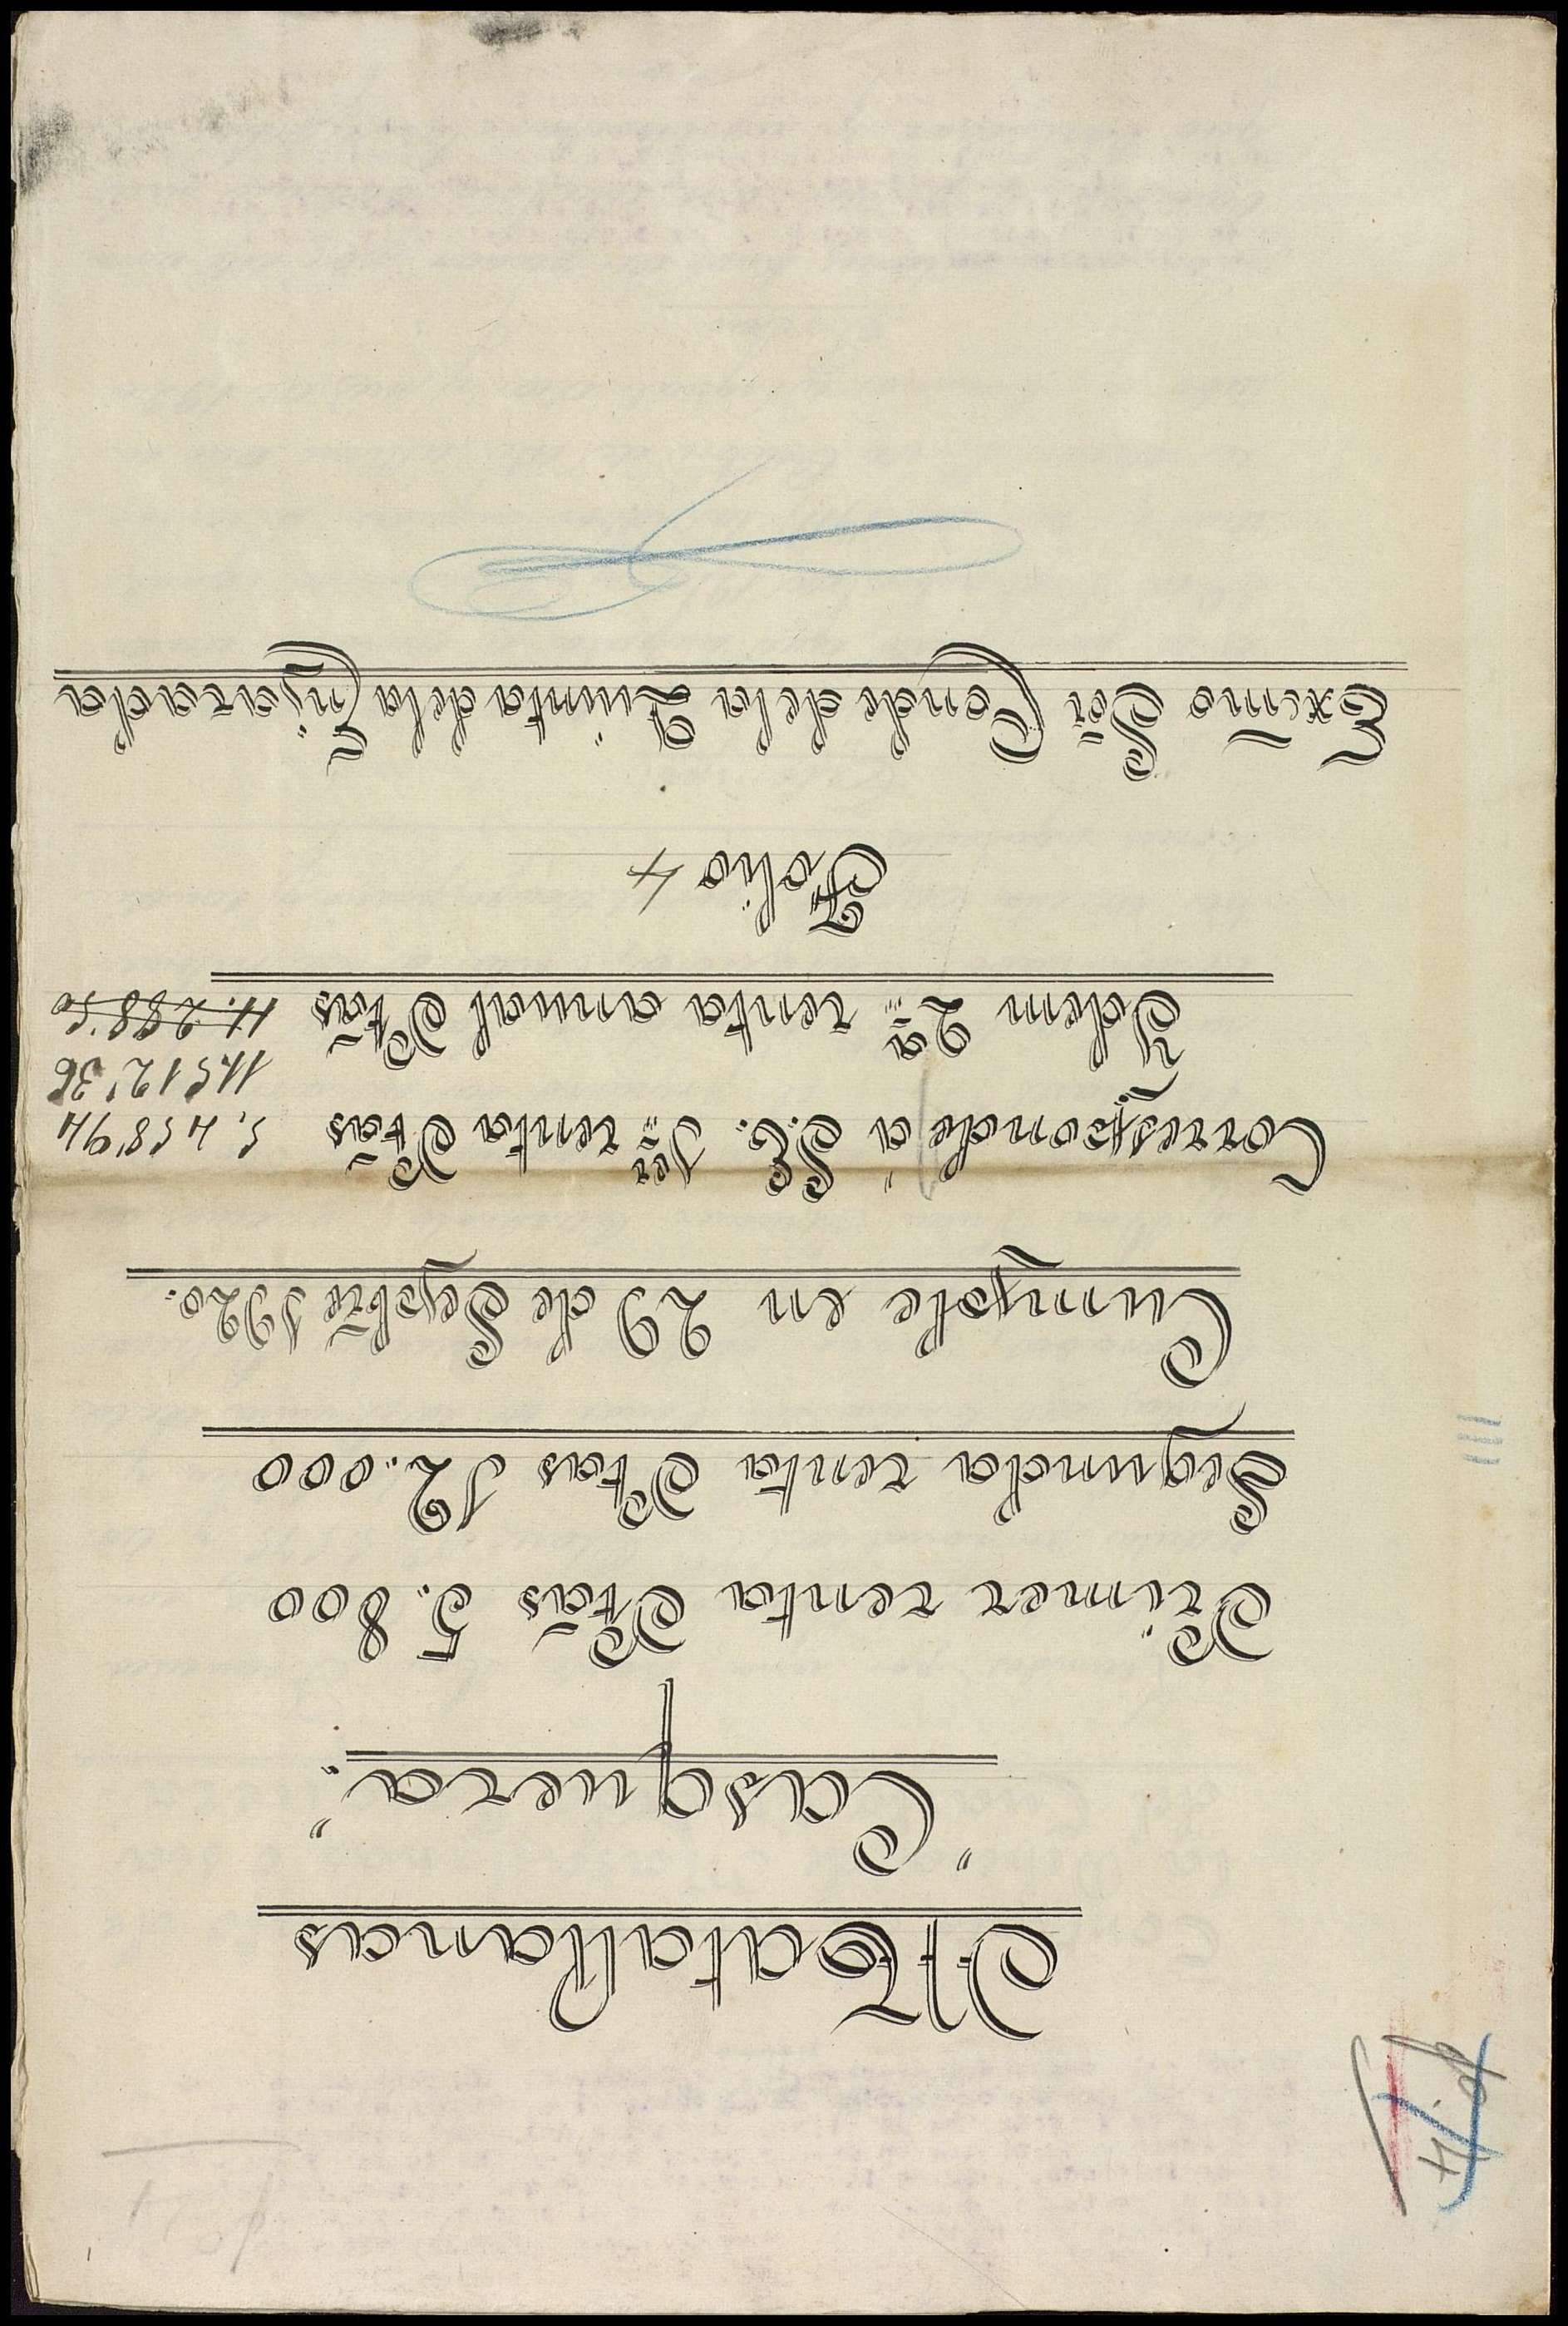 fo. 4
Matallanas
"Casquera."
Primer renta Ptas 5.800
Segunda renta Ptas 12.000
Cumple en 29 de Sepbre 1920.
Corresponde a S.E. 1er renta Ptas 5.458'94
11512'36
Idem 2a renta anual Ptas 11.288'50
Folio 4
Excmo Sor Conde de la Quinta de la Enjarada